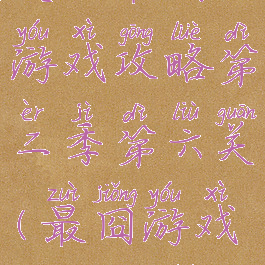 yóu xì gōng lüè dì
游戏攻略第
èr jì dì liù guān
二季第六关
zuì jiǒng yóu xì
(最囧游戏